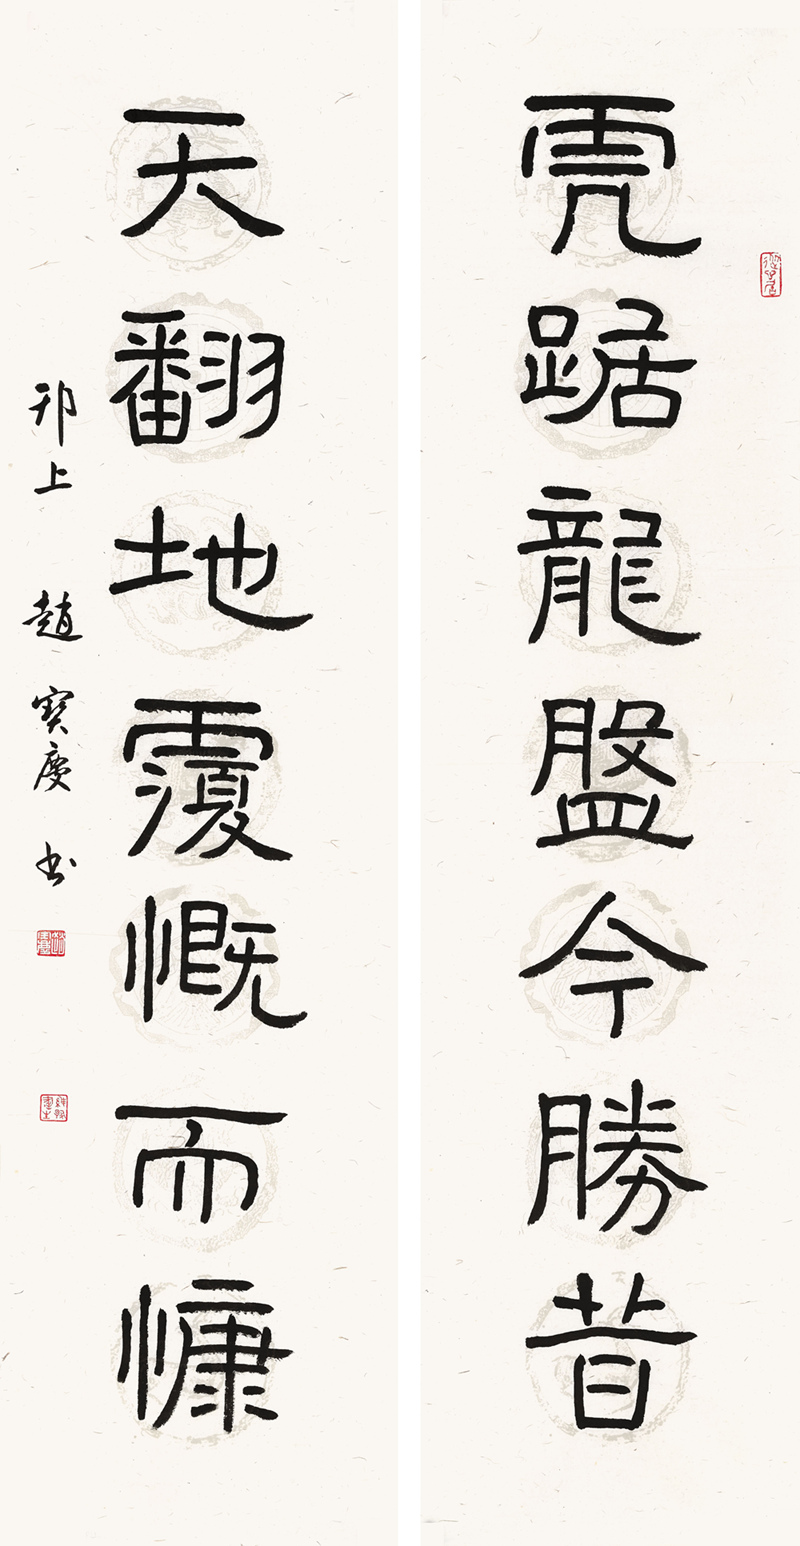 虎踞龍盤今勝昔
天翻地覆慨而慷
邗上 趙寶慶書